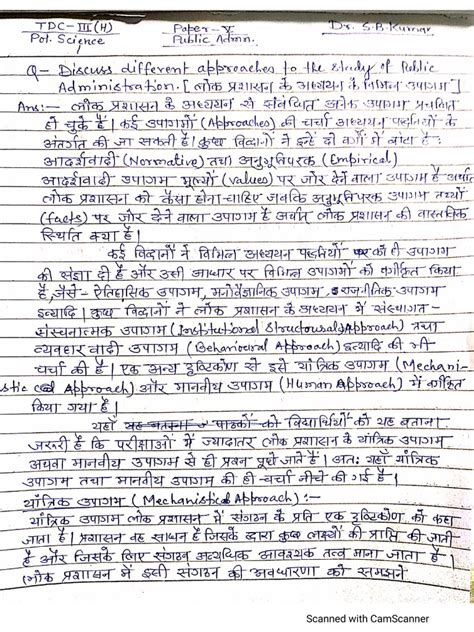 TDC-III(H) Paper-V Dr. S.B.Kumar
Pol. Science Public Admn.
Q- Discuss different approaches to the study of Public
Administration. [लोक प्रशासन के अध्ययन के विभिन्न उपागम]
Ans:- लोक प्रशासन के अध्ययन से संबंधित अनेक उपागम प्रचलित
हो चुके हैं। कई उपागमों (Approaches) की चर्चा अध्ययन पद्धतियों के
अंतर्गत की जा सकती है। कुछ विद्वानों ने इन्हें दो वर्गों में बांटा है:
आदर्शवादी (Normative) तथा अनुभूविपरक (Empirical)
आदर्शवादी उपागम मूल्यों (values) पर जोर देने वाला उपागम है अर्थात
लोक प्रशासन को कैसा होना चाहिए जबकि अनुभूविपरक उपागम तथ्यों
(facts) पर जोर देने वाला उपागम है अर्थात लोक प्रशासन की वास्तविक
स्थिति क्या है।
कई विद्वानों ने विभिन्न अध्ययन पद्धतियों को ही उपागम
की संज्ञा दी है और उसी आधार पर विभिन्न उपागमों को वर्गीकृत किया
है, जैसे- ऐतिहासिक उपागम, मनोवैज्ञानिक उपागम, राजनीतिक उपागम
इत्यादि। कुछ विद्वानों ने लोक प्रशासन के अध्ययन में संस्थागत-
संरचनात्मक उपागम (Institutional Structural Approach) तथा
व्यवहारवादी उपागम (Behavioural Approach) इत्यादि की भी
चर्चा की है। एक अन्य दृष्टिकोण से इसे यांत्रिक उपागम (Mechani-
stic Approach) और मानवीय उपागम (Human Approach) में वर्गीकृत
किया गया है।
यहाँ पाठकों को विद्यार्थियों को यह बताना
जरूरी है कि परीक्षाओं में ज्यादातर लोक प्रशासन के यांत्रिक उपागम
अथवा मानवीय उपागम से ही प्रश्न पूछे जाते हैं। अतः यहाँ यांत्रिक
उपागम तथा मानवीय उपागम की ही चर्चा नीचे की गई है।
यांत्रिक उपागम (Mechanistical Approach):-
यांत्रिक उपागम लोक प्रशासन में संगठन के प्रति एक दृष्टिकोण को कहा
जाता है। प्रशासन वह साधन है जिसके द्वारा कुछ लक्ष्यों की प्राप्ति की जाती
है और जिसके लिए संगठन अत्यधिक आवश्यक तत्व माना जाता है।
लोक प्रशासन में इसी संगठन की अवधारणा को समझने
Scanned with CamScanner